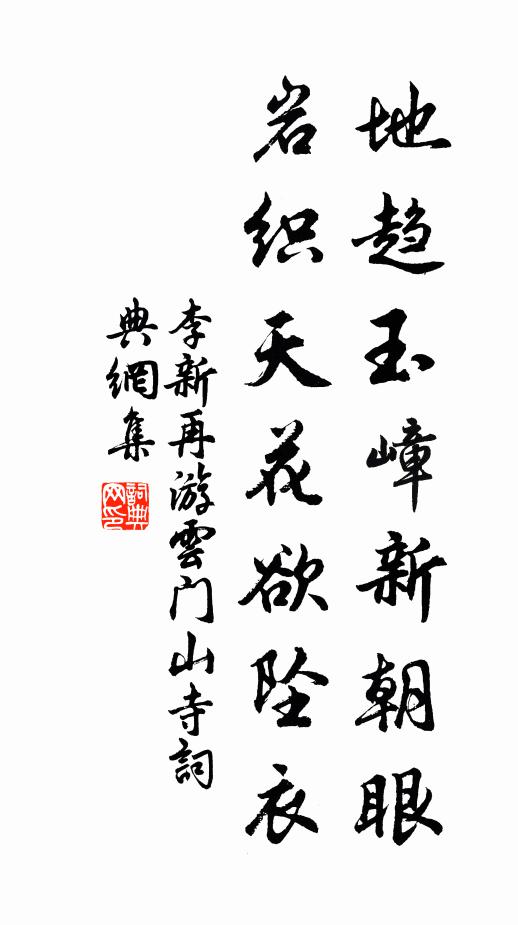 地趋玉嶂新朝眼
岩织天花欲坠衣
李新再游雲门山寺詞
典網集
詞典网印